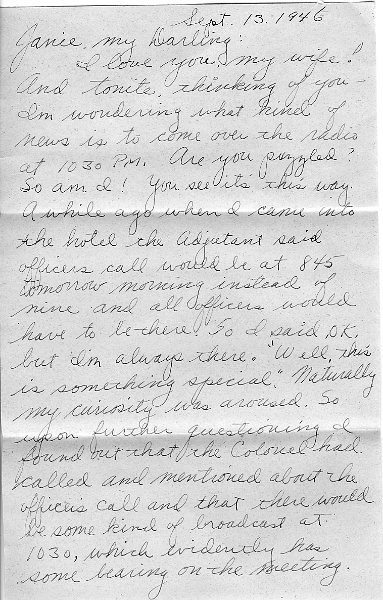 Sept. 13. 1946
Janie, my Darling:
I love you, my wife!
And tonite, thinking of you -
I'm wondering what kind of
news is to come over the radio
at 1030 P.M. Are you puzzled?
So am I! You see its this way.
A while ago when I came into
the hotel the Adjutant said
officers call would be at 845
tomorrow morning instead of
nine and all officers would
have to be there. So I said O.K.
but I'm always there. "Well, this
is something special." Naturally
my curiosity was aroused. So
upon further questioning I
found out that the Colonel had
called and mentioned about the
officers call and that there would
be some kind of broadcast at
1030, which evidently has
some bearing on the meeting.